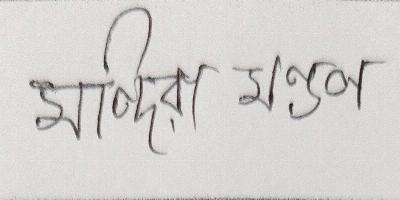 মন্দিরা মণ্ডল